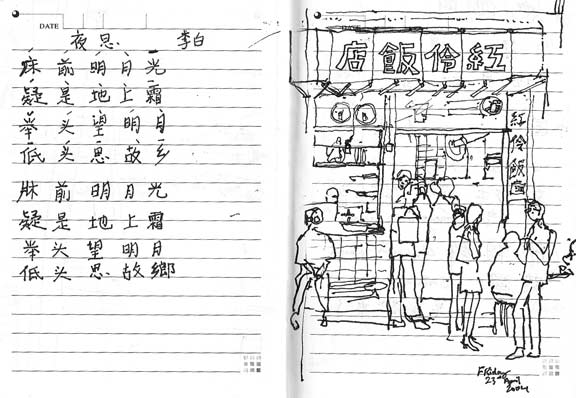 DATE
夜思 李白
床前明月光
疑是地上霜
举头望明月
低头思故乡
床前明月光
疑是地上霜
举头望明月
低头思故鄉
DATE
紅伶飯店
紅伶飯店
Friday
23rd April
2004